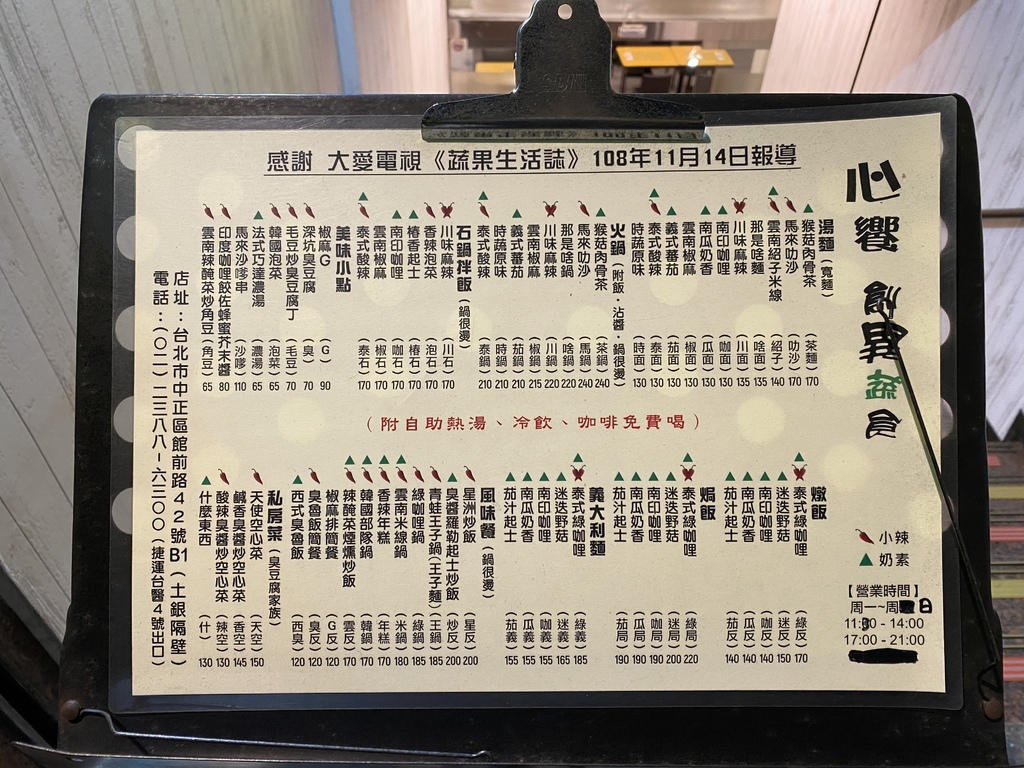 感謝 大愛電視《蔬果生活誌》108年11月14日報導
心饗 創異蔬食
湯麵(寬麵)
猴菇肉骨茶(茶麵)170
馬來叻沙(叻沙)170
雲南紹子米線(紹子)140
那是啥麵(啥面)135
川味麻辣(川面)135
南印咖哩(咖面)130
南瓜奶香(瓜面)130
雲南椒麻(椒面)130
義式蕃茄(茄面)130
泰式酸辣(泰面)130
時蔬原味(時面)130
火鍋(附飯・沾醬・鍋很燙)
猴菇肉骨茶(茶鍋)240
馬來叻沙(叻鍋)240
那是啥鍋(啥鍋)220
川味麻辣(川鍋)220
雲南椒麻(椒鍋)215
義式蕃茄(茄鍋)210
時蔬原味(時鍋)210
泰式酸辣(泰鍋)210
石鍋拌飯(鍋很燙)
川味麻辣(川石)170
香辣泡菜(泡石)170
椿香起士(椿石)170
南印咖哩(咖石)170
雲南椒麻(椒石)170
泰式酸辣(泰石)170
美味小點
椒麻G(G)90
深坑臭豆腐(臭)70
毛豆炒臭豆腐丁(毛豆)70
韓國泡菜(泡菜)65
法式巧達濃湯(濃湯)65
馬來沙嗲串(沙嗲)110
印度咖哩餃佐蜂蜜芥末醬 80
雲南辣醃菜炒角豆(角豆)65
(附自助熱湯、冷飲、咖啡免費喝)
燉飯
泰式綠咖哩(綠反)170
迷迭野菇(迷反)150
南印咖哩(咖反)140
南瓜奶香(瓜反)140
茄汁起士(茄反)140
焗飯
泰式綠咖哩(綠局)220
迷迭野菇(迷局)200
南印咖哩(咖局)190
南瓜奶香(瓜局)190
茄汁起士(茄局)190
義大利麵
泰式綠咖哩(綠義)185
迷迭野菇(迷義)165
南印咖哩(咖義)155
南瓜奶香(瓜義)155
茄汁起士(茄義)155
風味餐(鍋很燙)
星洲炒飯(星反)200
臭醬羅勒起士炒飯(炒反)200
青蛙王子鍋(王子麵)(王鍋)185
綠咖哩鍋(綠鍋)185
雲南米線鍋(米鍋)180
香辣年糕(年糕)170
韓國部隊鍋(韓鍋)170
辣醃菜煙燻炒飯(雲反)170
椒麻排簡餐(G反)120
臭魯飯簡餐(臭反)120
西式臭魯飯(西臭)120
私房菜(臭豆腐家族)
天使空心菜(天空)150
鹹香臭醬炒空心菜(香空)145
酸辣臭醬炒空心菜(辣空)130
什麼東西(什)130
店址:台北市中正區館前路42號B1(土銀隔壁)
電話:(〇二)二三八八-六三〇〇(捷運台醫4號出口)
小辣
奶素
【營業時間】
周一~周日
11:30 - 14:00
17:00 - 21:00